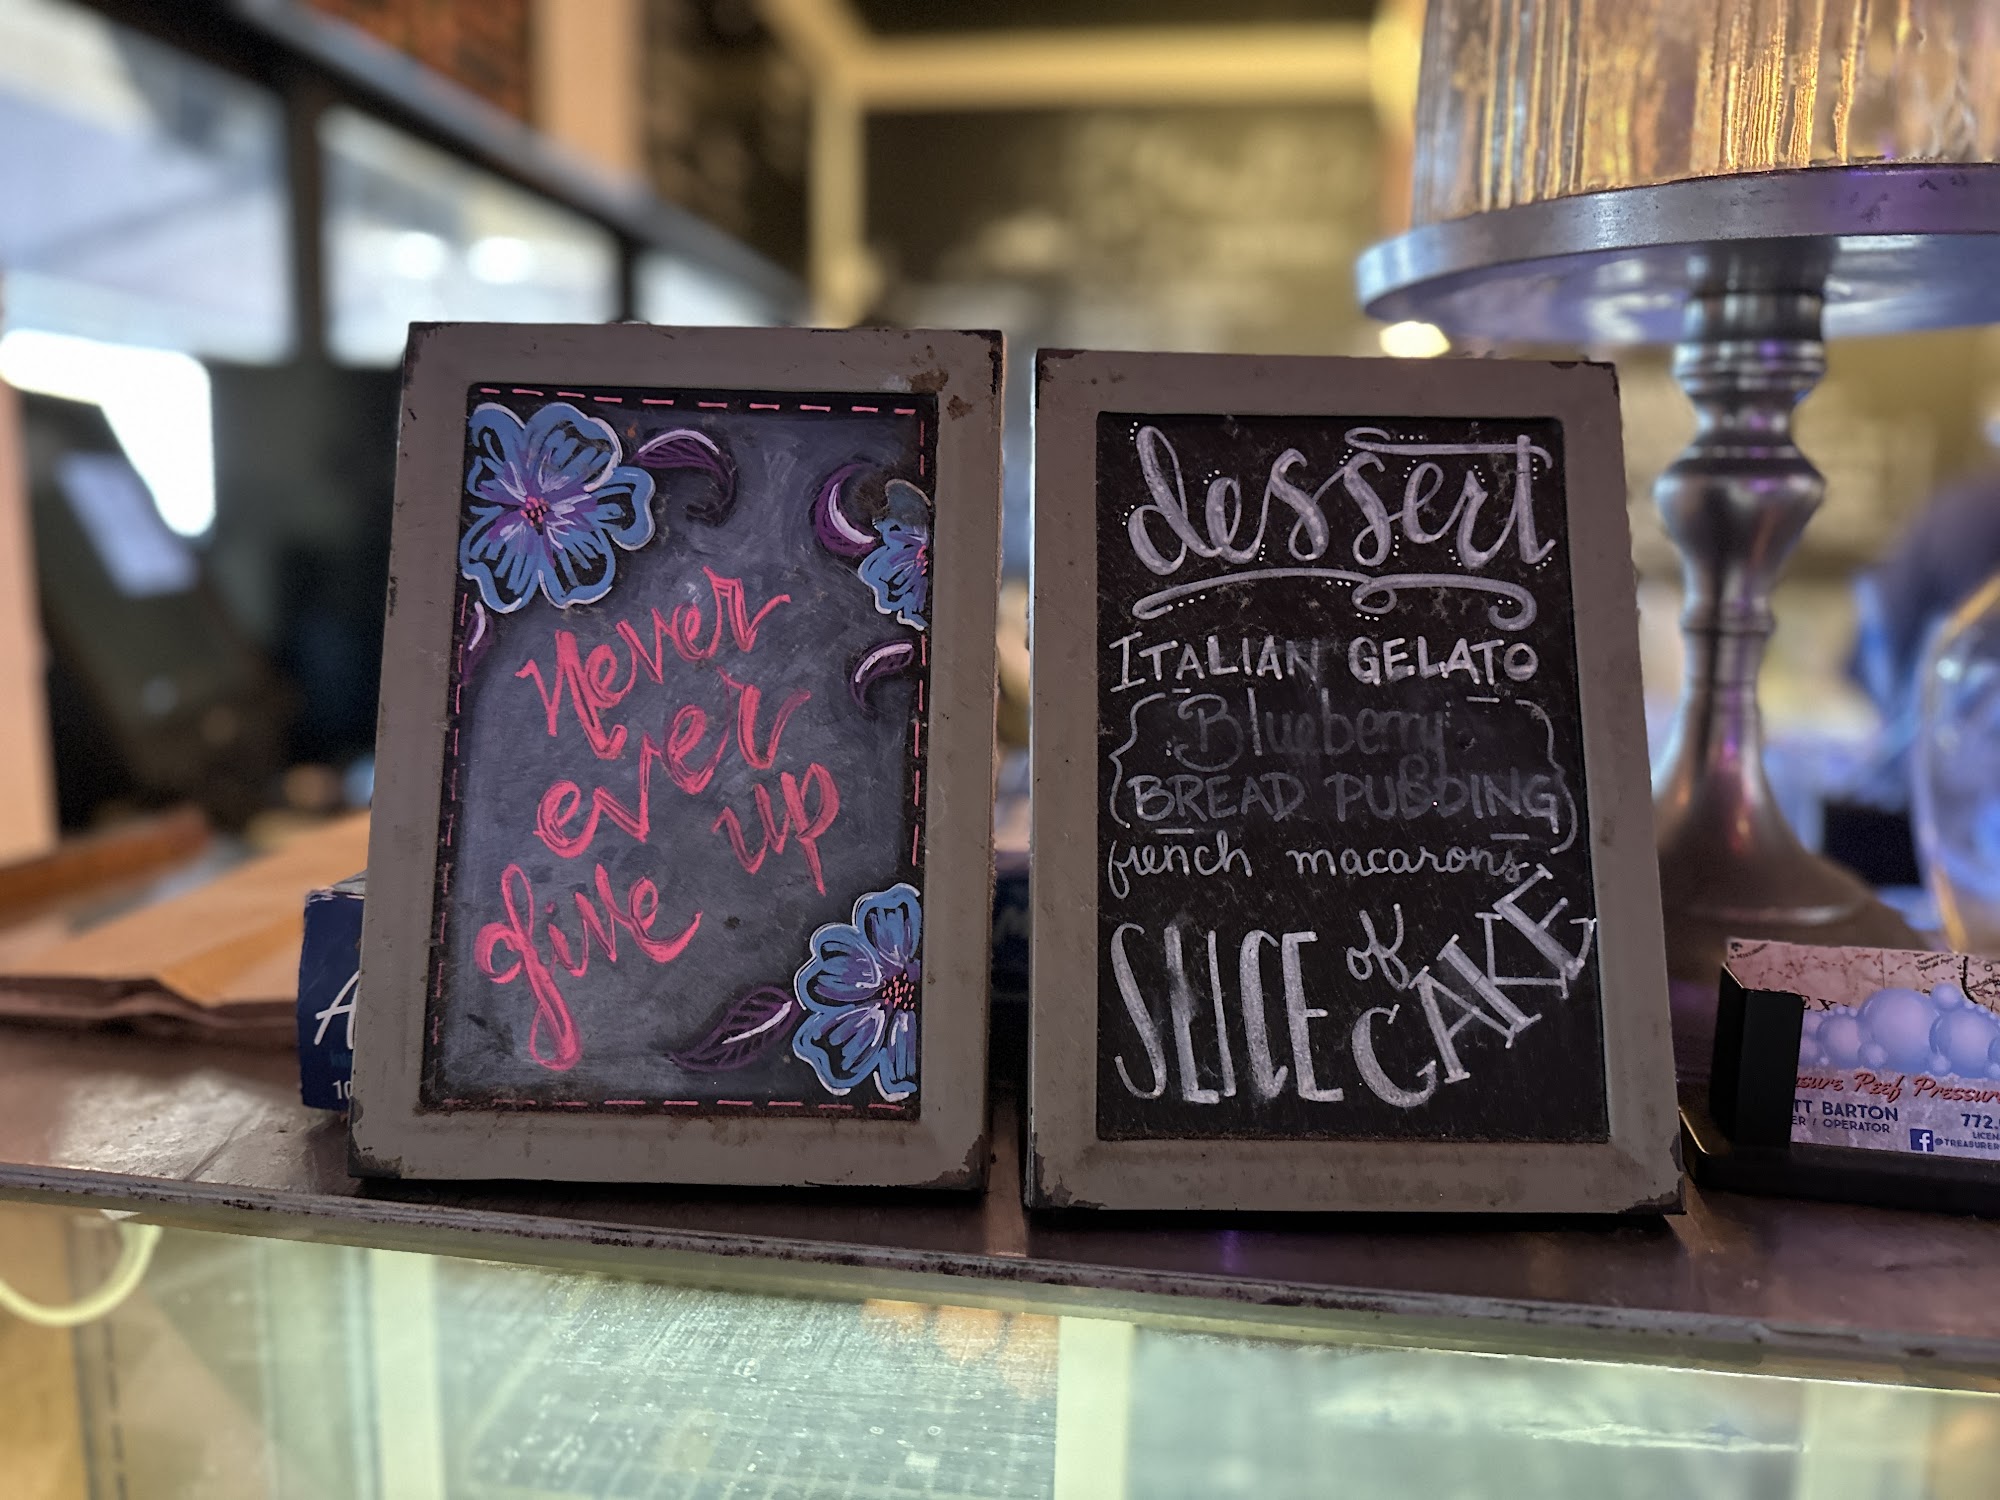 never
ever
give up
dessert
ITALIAN GELATO
Blueberry
BREAD PUDDING
french macarons
SLICE of CAKE
A
10
Reef Pressure
BARTON
/ OPERATOR
772.